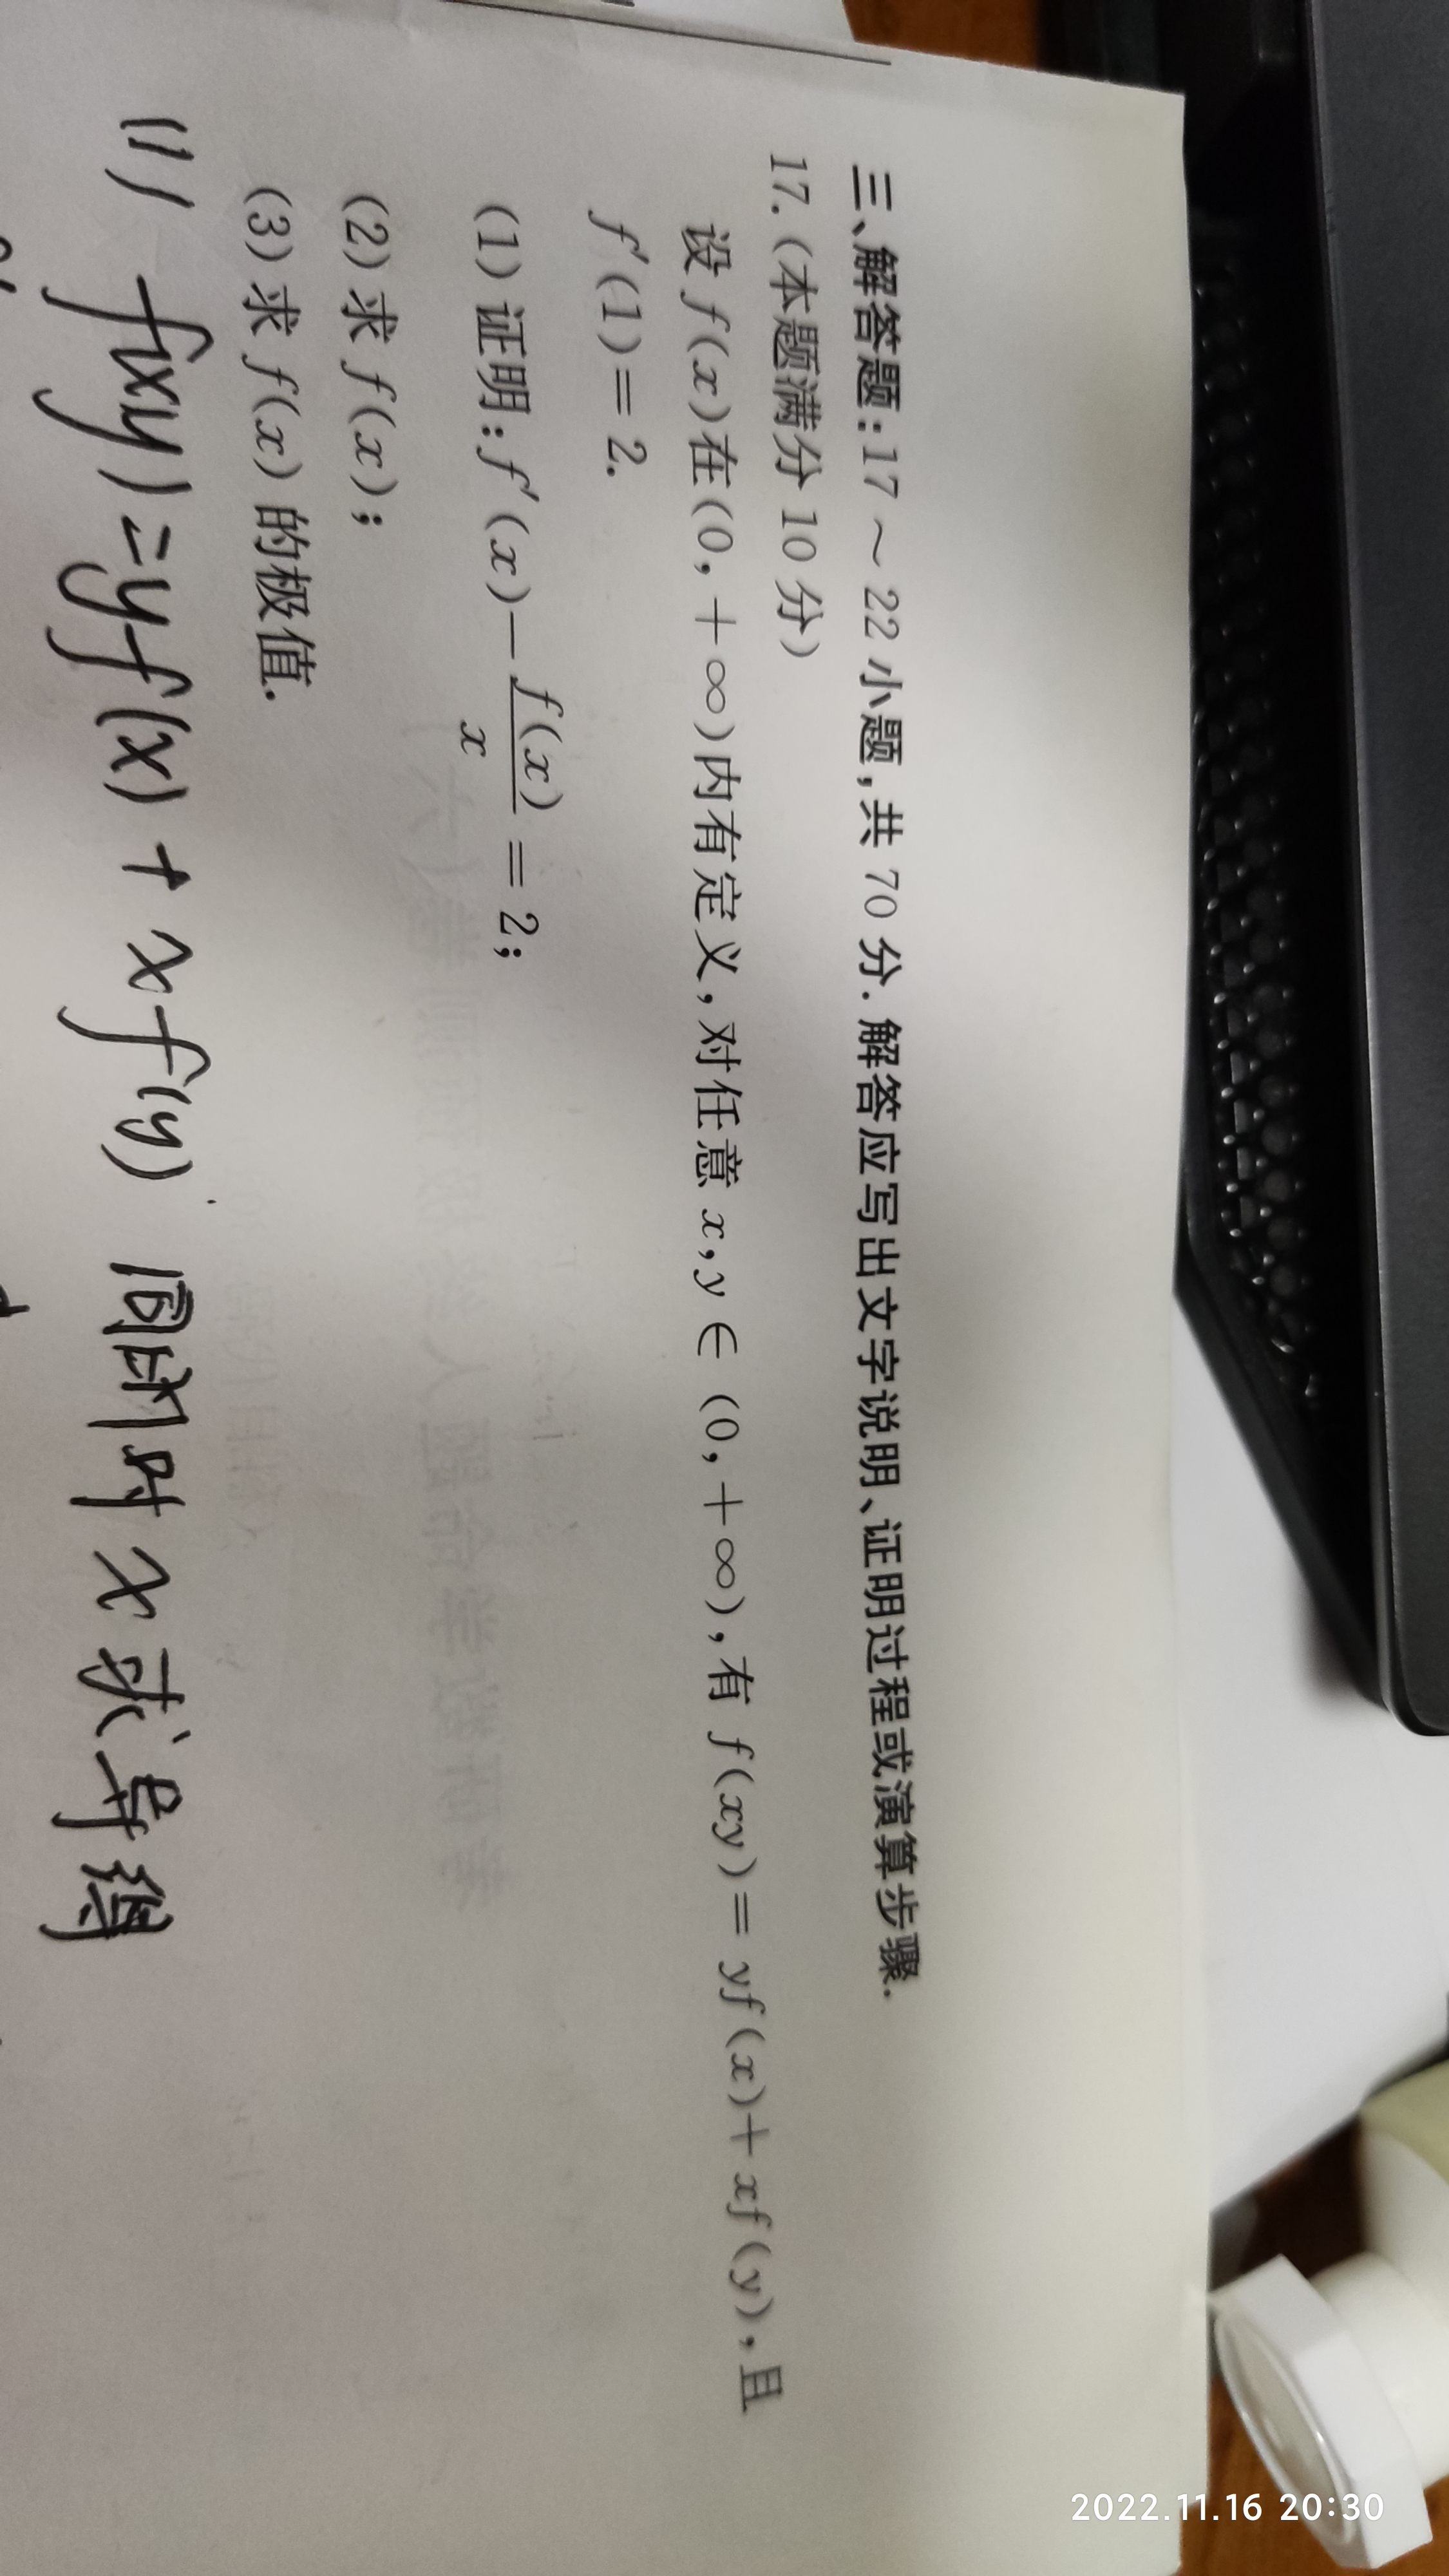 三、解答题:17～22小题,共70分.解答应写出文字说明、证明过程或演算步骤.
17.(本题满分10分)
设f(x)在(0,+∞)内有定义,对任意x,y∈(0,+∞),有f(xy)=yf(x)+xf(y),且
f′(1)=2.
(1)证明:f′(x)-f(x)/x=2;
(2)求f(x);
(3)求f(x)的极值.
(1) f(xy)=yf(x)+xf(y) 同时对x求导得
2022.11.16 20:30